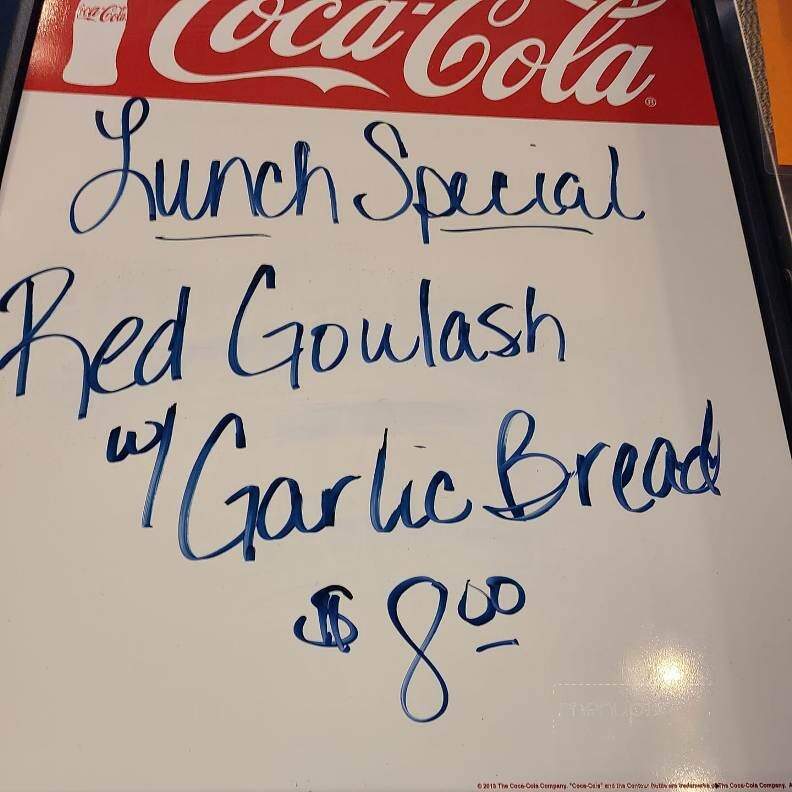 Coca-Cola
Coca-Cola ®
Lunch Special
Red Goulash
w/ Garlic Bread
$ 8.00
© 2015 The Coca-Cola Company. "Coca-Cola" and the Contour Bottle are trademarks of The Coca-Cola Company.